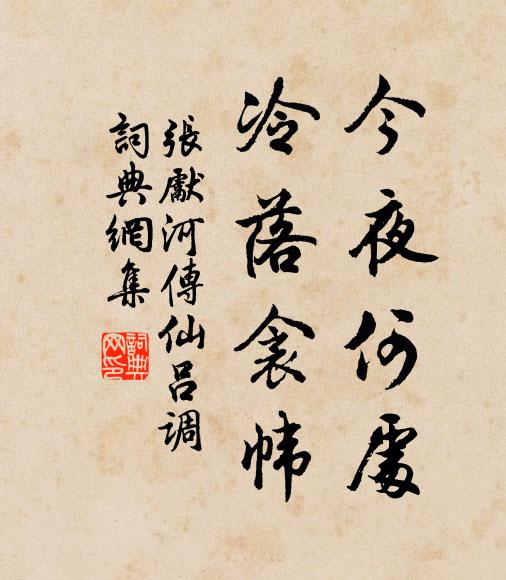 今夜何處
冷落衾幃
張獻河傳仙呂調
詞典網集
詞典
网印